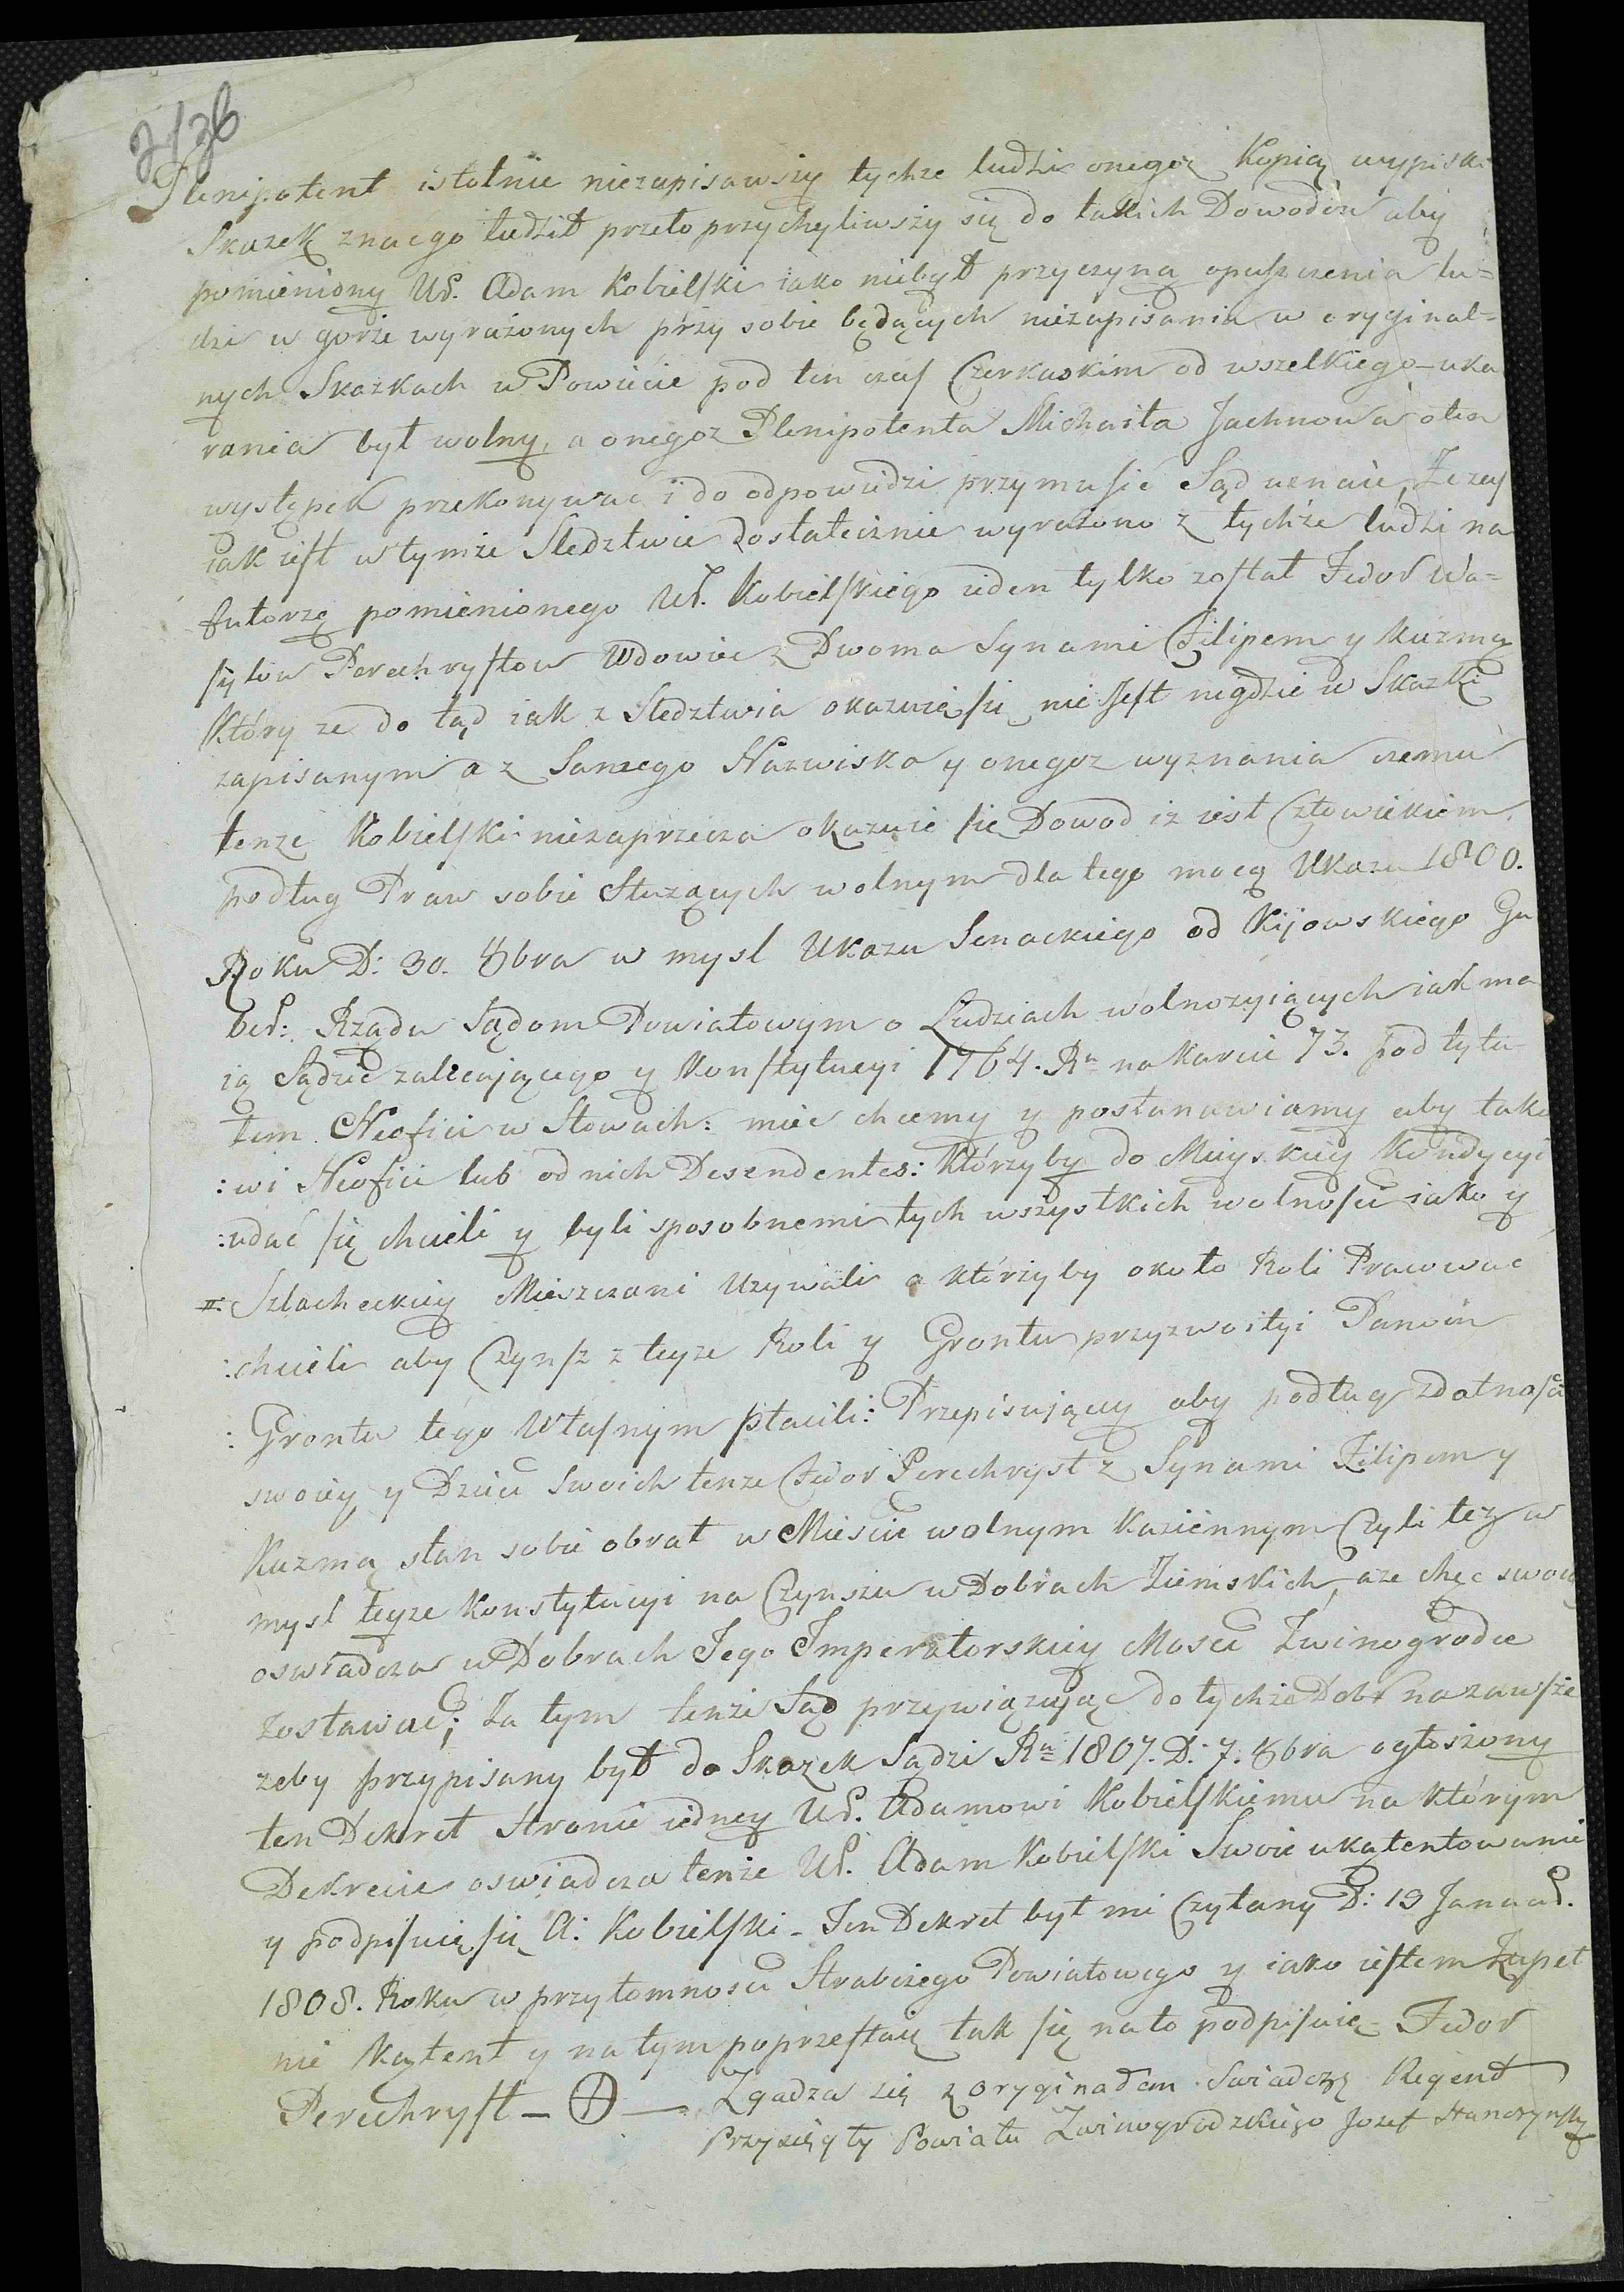 Plenipotent istotnie niezapisawszy tychże ludzi onegoż Kopią wypisk
Skazek znaego łudził przeto przychyliwszy się do takich Dowodów aby
pomieniony Ur. Adam Kobielski iako niebył przyczyną opuszczenia lu=
dzi w gorże wyrażonych przy sobie będących niezapisania w oryginal=
nych Skazkach w Powiecie pod ten czas Czerkaskim od wszelkiego uka
rania był wolny, a onegoz Plenipotenta Michaiła Jachnowa oten
występek przekonywac i do odpowiedzi przymusić Sąd uznaie, Ze zaś
iak iest w tymże Sledztwie dostatecznie wyrażono z tychże ludzi na
futorzę pomienionego Ur. Kobielskiego ieden tylko został Fedor Wa=
sylow Perechrystow Wdowiec z Dwoma Synami Filipem y Kuzmą
Który ze do tąd iak z Sledztwia okazuie się nie Jest nigdzie w Skazki
zapisanym a z Samego Nazwiska y onegoz wyznania czemu
tenze Kobielski niezaprzecza okazuie się Dowod iz iest Człowiekiem
podług Praw sobie Służących wolnym dla tego mocą Ukazu 1800.
Roku D: 30. 8bra w mysl Ukazu Senackiego od Kijowskiego Gu
ber: Rządu Sądom Powiatowym o Ludziach wolnozyiących iak ma
ią Sądzić zalecającego y Konstytucyi 1764. Ru na Karcie 73. pod tytu-
łem Neofici w Słowach: miec chcemy y postanawiamy aby tako
:wi Neofici lub od nich Desendentes: Którzyby do Mieyskiey Kondycyi
:udać się chcieli y byli sposobnemi tych wszystkich wolności iako y
: Szlacheckiey Mieszczani Uzywali a którzyby około Roli Pracowac
:chcieli aby Czynsz z teyze Roli y Grontu przyzwoityi Panom
: Grontu tego Własnym płacili: Przepisujący aby podług zdatności
swoiey y Dzieci Swoich tenze Fedor Perechryst z Synami Filipem y
Kuzmą stan sobie obrał w Miescie wolnym Kaziennym Czyli tez w
mysl teyze Konstytucyi na Czynszu w Dobrach Ziemskich, aze chęc swoię
oswiadcza w Dobrach Jego Imperatorskiey Mosci Zwinogrodce
zostawac; Za tym tenże Sąd przywiązując do tychże Dobr nazawsze
zeby przypisany był do Skazek Sądzi Ru 1807. D. 7. 8bra ogłoszony
ten Dekret Stronie iedney Ur. Adamowi Kobielskiemu na którym
Dekrecie oswiadcza tenże Ur. Adam Kobielski Swoie ukątentowanie
y podpisuię się A: Kobielski - Ten Dekret był mi Czytany D: 19 Januar.
1808. Roku w przytomnosci Strabczego Powiatowego y iako iestem Zupeł
nie Kątent y na tym poprzestaię tak się nato podpisuię - Fedor
Perechryst - - Zgadza się z oryginałem Swiadczę Regent
Przysięgły Powiatu Zwinogrodzkiego Jozef